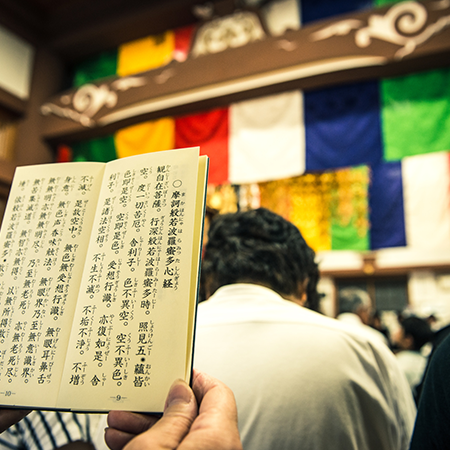 ○摩訶般若波羅蜜多心経
観自在菩薩。行深般若波羅蜜多時。照見五蘊皆
空。度一切苦厄。舎利子。色不異空。空不異色。
色即是空。空即是色。受想行識。亦復如是。舎
利子。是諸法空相。不生不滅。不垢不浄。不増
不減。是故空中。無色無受想行識。無眼耳鼻舌
身意。無色声香味触法。無眼界乃至無意識界。
無無明。亦無無明尽。乃至無老死。亦無老死尽。
無苦集滅道。無智亦無得。以無所得故
-9-
-10-